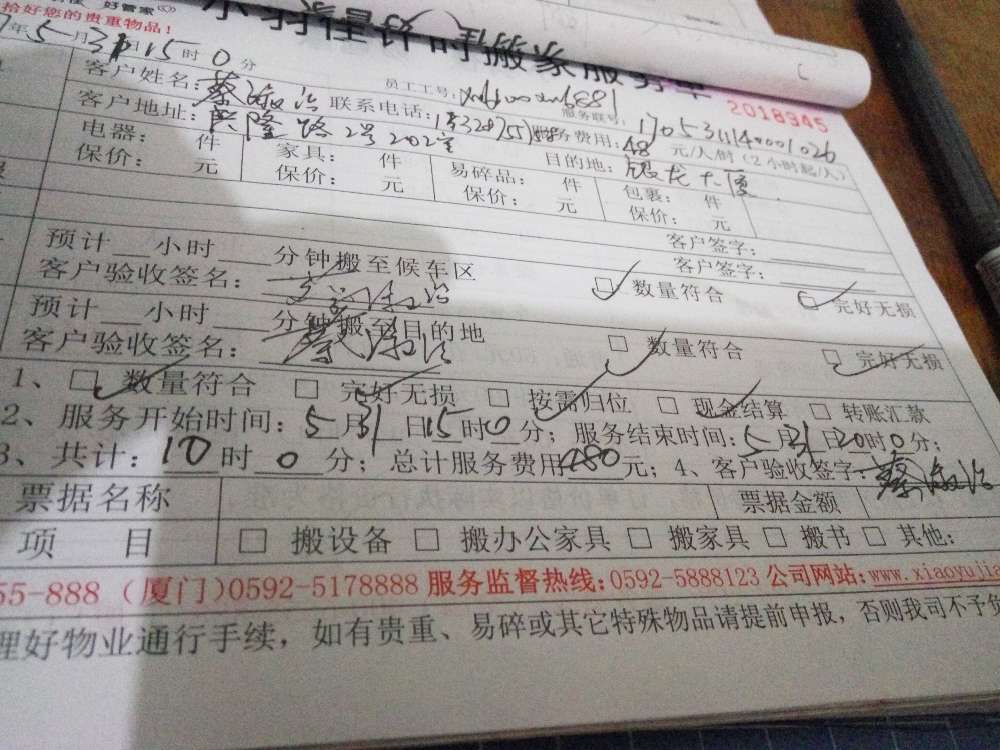 好管家
拾好您的贵重物品！
年5月31日15时0分
计时搬家服务单
2018945
客户姓名：蔡淑治 联系电话： 员工工号： 服务联号：
客户地址：兴隆路2号202室 服务费用：48元/人/时（2小时起/人）
电器： 件 家具： 件 易碎品： 件 目的地：银龙大厦 包裹： 件
保价： 元 保价： 元 保价： 元 保价： 元
客户签字：
预计 小时 分钟搬至候车区 客户签字：
客户验收签名：蔡淑治 数量符合 完好无损
预计 小时 分钟搬至目的地
客户验收签名：蔡淑治 数量符合 完好无损
1、 数量符合 完好无损 按需归位 现金结算 转账汇款
2、服务开始时间：5月31日15时0分；服务结束时间：5月31日20时0分；
3、共计：10时0分；总计服务费用480元；4、客户验收签字：蔡淑治
票据名称 票据金额
项目 搬设备 搬办公家具 搬家具 搬书 其他：
55-888（厦门）0592-5178888 服务监督热线：0592-5888123 公司网站：www.xiaoyujia
理好物业通行手续，如有贵重、易碎或其它特殊物品请提前申报，否则我司不予